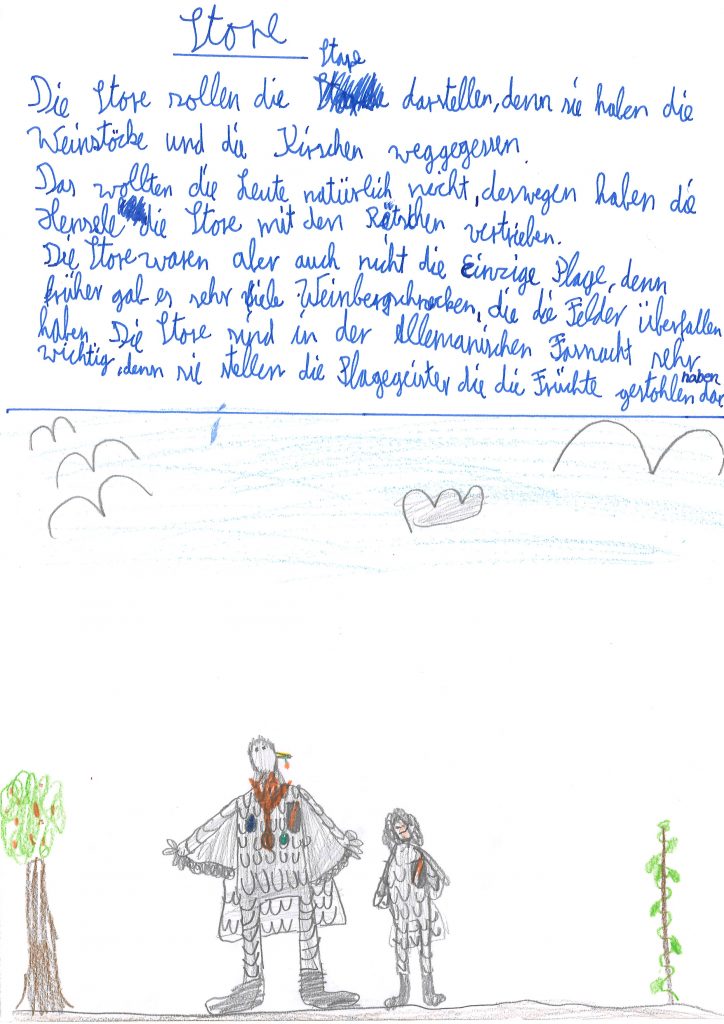 Store
Stare
Die Store sollen die darstellen, denn sie haben die
Weinstöcke und die Kirschen weggegessen.
Das wollten die Leute natürlich nicht, deswegen haben die
Hensele die Store mit den Rätschen vertrieben.
Die Store waren aber auch nicht die einzige Plage, denn
früher gab es sehr viele Weinbergschnecken, die die Felder überfallen
haben. Die Store sind in der Allemanischen Fasnacht sehr
wichtig, denn sie stellen die Plagegeister die die Früchte gestohlen haben dar